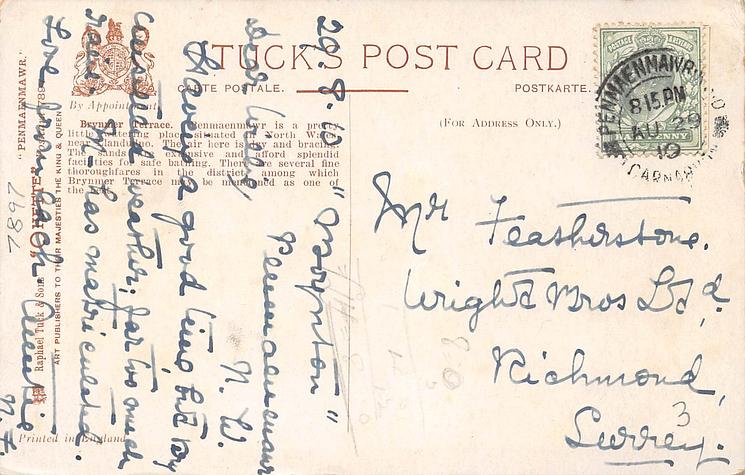 TUCK'S POST CARD
CARTE POSTALE.
POSTKARTE.
By Appointment
(FOR ADDRESS ONLY.)
Brynner Terrace. Penmaenmawr is a pretty
little watering place situated in North Wales
near Llandudno. The air is dry and bracing.
The sands are extensive and afford splendid
facilities for safe bathing. There are several fine
thoroughfares in the district, among which
Brynner Terrace may be mentioned as one of
the best.
"PENMAENMAWR."
Raphael Tuck & Sons' "OILETTE" 7897
ART PUBLISHERS TO THEIR MAJESTIES THE KING & QUEEN
Printed in England
7897
29.8.10
Penmaenmawr
N. W.
Having a good time but
weather; far too much
rain.
has matriculated.
Love from each
Auntie
N. F.
Mr Featherstone.
Wright Bros Ltd,
Richmond,
Surrey.
3
POSTAGE
PENMAENMAWR
8.15.PM
AU 29
10
PENNY